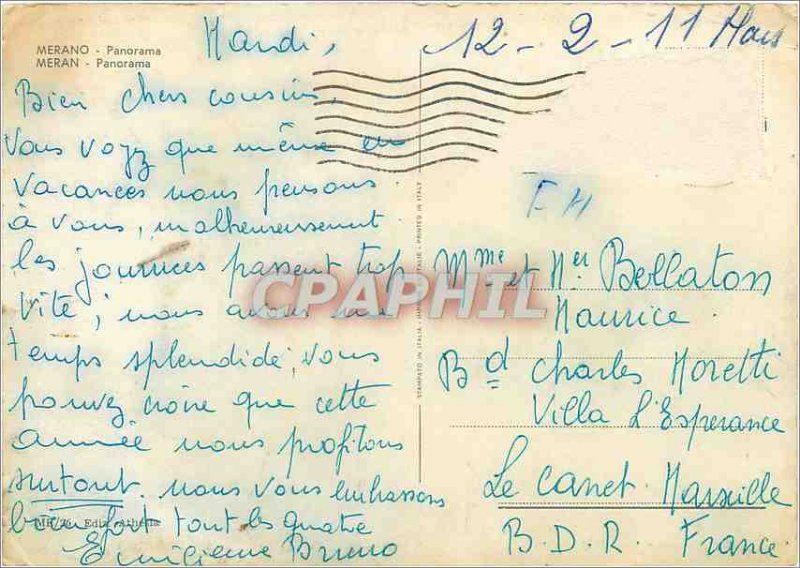 MERANO - Panorama
MERAN - Panorama
Mardi,
Bien chers cousins,
Vous voyez que même en
vacances nous pensons
à vous, malheureusement
les journées passent trop
vite, nous avons un
temps splendide, vous
pouvez croire que cette
année nous profitons
surtout. nous vous embrassons
bien fort tout les quatre
Emilienne Bruno
MR Ediz. Athesia
STAMPATO IN ITALIA - IMPRIMÉ EN ITALIE - PRINTED IN ITALY
12 - 2 - 11 Mars
F H
Mme et Mer Bellaton
Maurice.
Bd Charles Moretti
Villa L'Esperance
Le Canet. Marseille
B.D.R. France
CPAPHIL